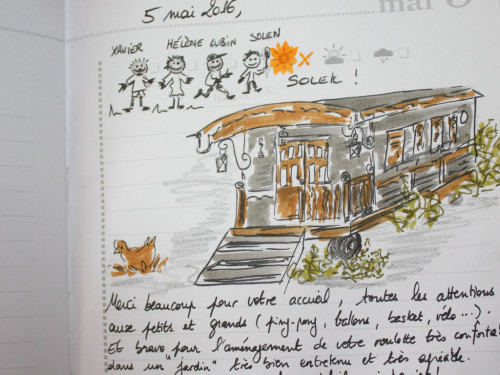 mai 8
5 mai 2016,
XAVIER HÉLÈNE LUBIN SOLEN
SOLEIL !
Merci beaucoup pour votre accueil, toutes les attentions
aux petits et grands (ping-pong, ballons, basket, vélo...).
Et bravo pour l'aménagement de votre roulotte très confortab
dans un "jardin" très bien entretenu et très agréable.